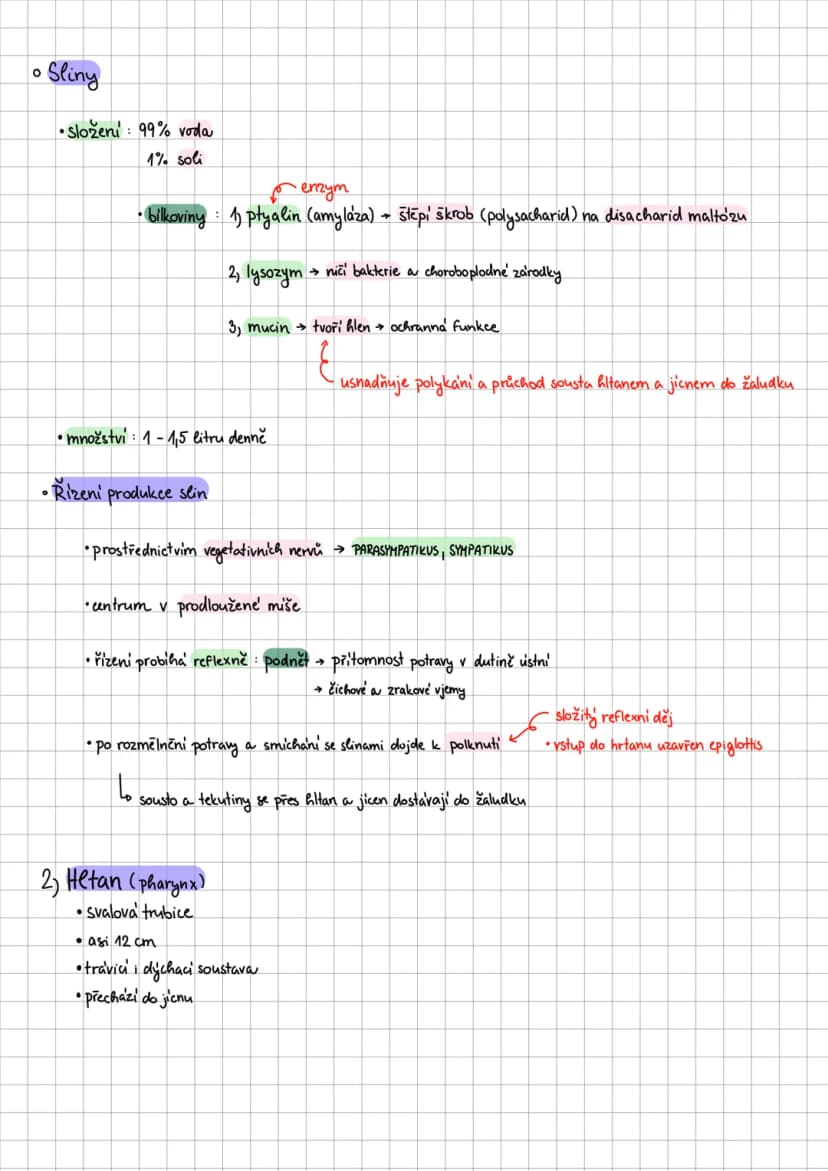 Sliny
• složení : 99% voda
1% soli
enzym
• bílkoviny : 1) ptyalin (amyláza) → štěpí škrob (polysacharid) na disacharid maltózu
2) lysozym → ničí bakterie a choroboplodné zárodky
3) mucin → tvoří hlen → ochranná funkce
usnadňuje polykání a průchod sousta hltanem a jícnem do žaludku
• množství : 1 - 1,5 litru denně
Řízení produkce slin
• prostřednictvím vegetativních nervů → PARASYMPATIKUS, SYMPATIKUS
• centrum v prodloužené míše
• řízení probíhá reflexně : podnět → přítomnost potravy v dutině ústní
→ čichové a zrakové vjemy
složitý reflexní děj
• po rozmělnění potravy a smíchání se slinami dojde k polknutí
• vstup do hrtanu uzavřen epiglottis
↳ sousto a tekutiny se přes hltan a jícen dostávají do žaludku
2) Hltan (pharynx)
• svalová trubice
• asi 12 cm
• trávicí i dýchací soustava
• přechází do jícnu